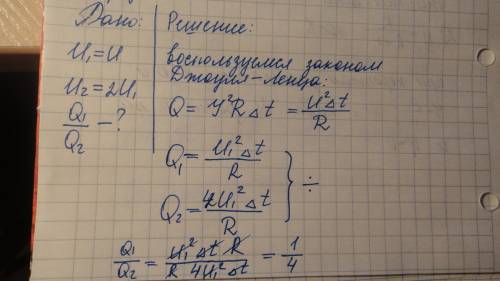 Дано:
U₁=U
U₂=2U₁
Q₁/Q₂ — ?
Решение:
воспользуемся законом
Джоуля-Ленца:
Q = У²RΔt = U²Δt/R
Q₁ = U₁²Δt/R
Q₂ = 4U₁²Δt/R } ÷
Q₁/Q₂ = U₁² Δt R / R 4U₁² Δt = 1/4